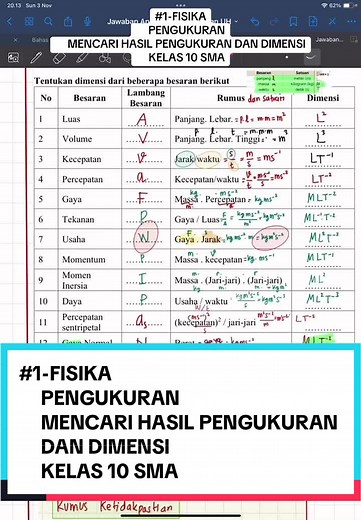 20.13 Sun 3 Nov
62%
#1-FISIKA
PENGUKURAN
MENCARI HASIL PENGUKURAN DAN DIMENSI
KELAS 10 SMA
Tentukan dimensi dari beberapa besaran berikut
No Besaran Lambang Besaran Rumus dan satuan Dimensi
1 Luas A Panjang. Lebar = m.m = m² L²
2 Volume V Panjang. Lebar. Tinggi = m³ L³
3 Kecepatan v Jarak/waktu = m/s = ms⁻¹ LT⁻¹
4 Percepatan a Kecepatan/waktu = ms⁻² LT⁻²
5 Gaya F Massa . Percepatan = kg ms⁻² MLT⁻²
6 Tekanan P Gaya / Luas ML⁻¹T⁻²
7 Usaha W Gaya . Jarak = kgm²s⁻² ML²T⁻²
8 Momentum P Massa . kecepatan = kg. ms⁻¹ MLT⁻¹
9 Momen Inersia I Massa . (Jari-jari) . (Jari-jari) ML
10 Daya P Usaha / waktu ML²T⁻³
11 Percepatan sentripetal as (kecepatan)² / jari-jari LT⁻²
MLT⁻²
#1-FISIKA
PENGUKURAN
MENCARI HASIL PENGUKURAN
DAN DIMENSI
KELAS 10 SMA
Rumus Ketidakpastian